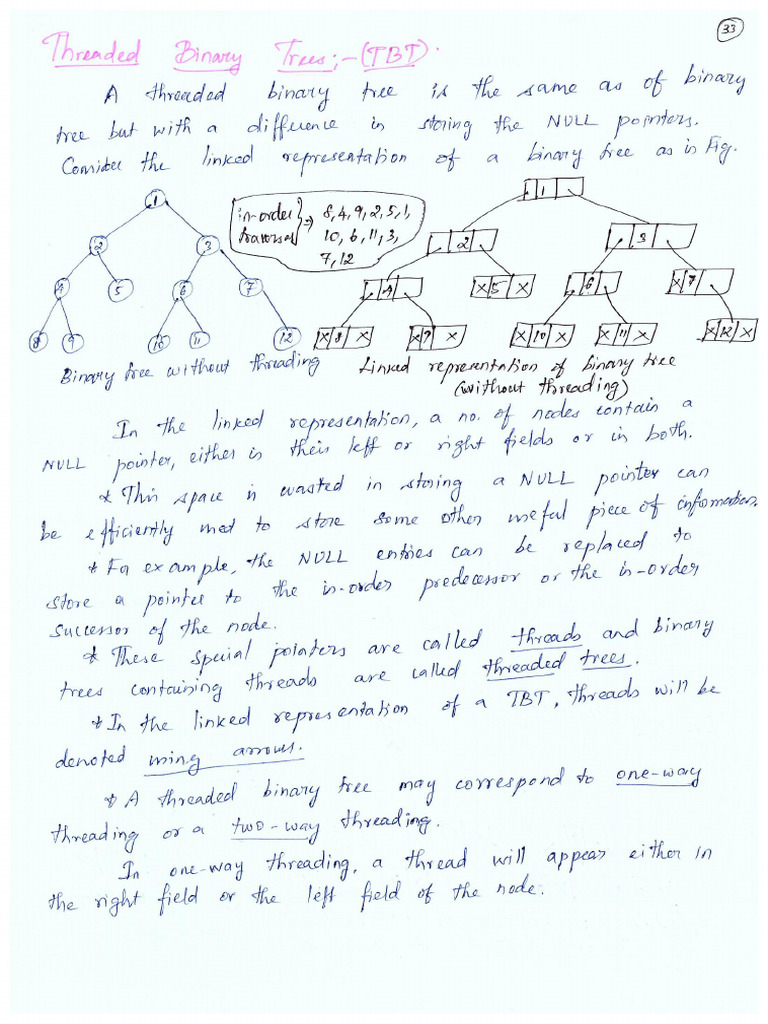 33
Threaded Binary Trees:-(TBT).
A threaded binary tree is the same as of binary
tree but with a difference in storing the NULL pointers.
Consider the linked representation of a binary tree as in Fig.
1
2 3
4 5 6 7
8 9 10 11 12
Binary tree without threading
in-order traversal } => 8, 4, 9, 2, 5, 1,
10, 6, 11, 3,
7, 12
1
2 3
4 X 5 X 6 X 7
X 8 X X 9 X X 10 X X 11 X X 12 X
Linked representation of binary tree
(without threading)
In the linked representation, a no. of nodes contain a
NULL pointer, either in their left or right fields or in both.
* This space is wasted in storing a NULL pointer can
be efficiently used to store some other useful piece of information.
* For example, the NULL entries can be replaced to
store a pointer to the in-order predecessor or the in-order
successor of the node.
* These special pointers are called threads and binary
trees containing threads are called threaded trees.
* In the linked representation of a TBT, threads will be
denoted using arrows.
* A threaded binary tree may correspond to one-way
threading or a two-way threading.
In one-way threading, a thread will appear either in
the right field or the left field of the node.